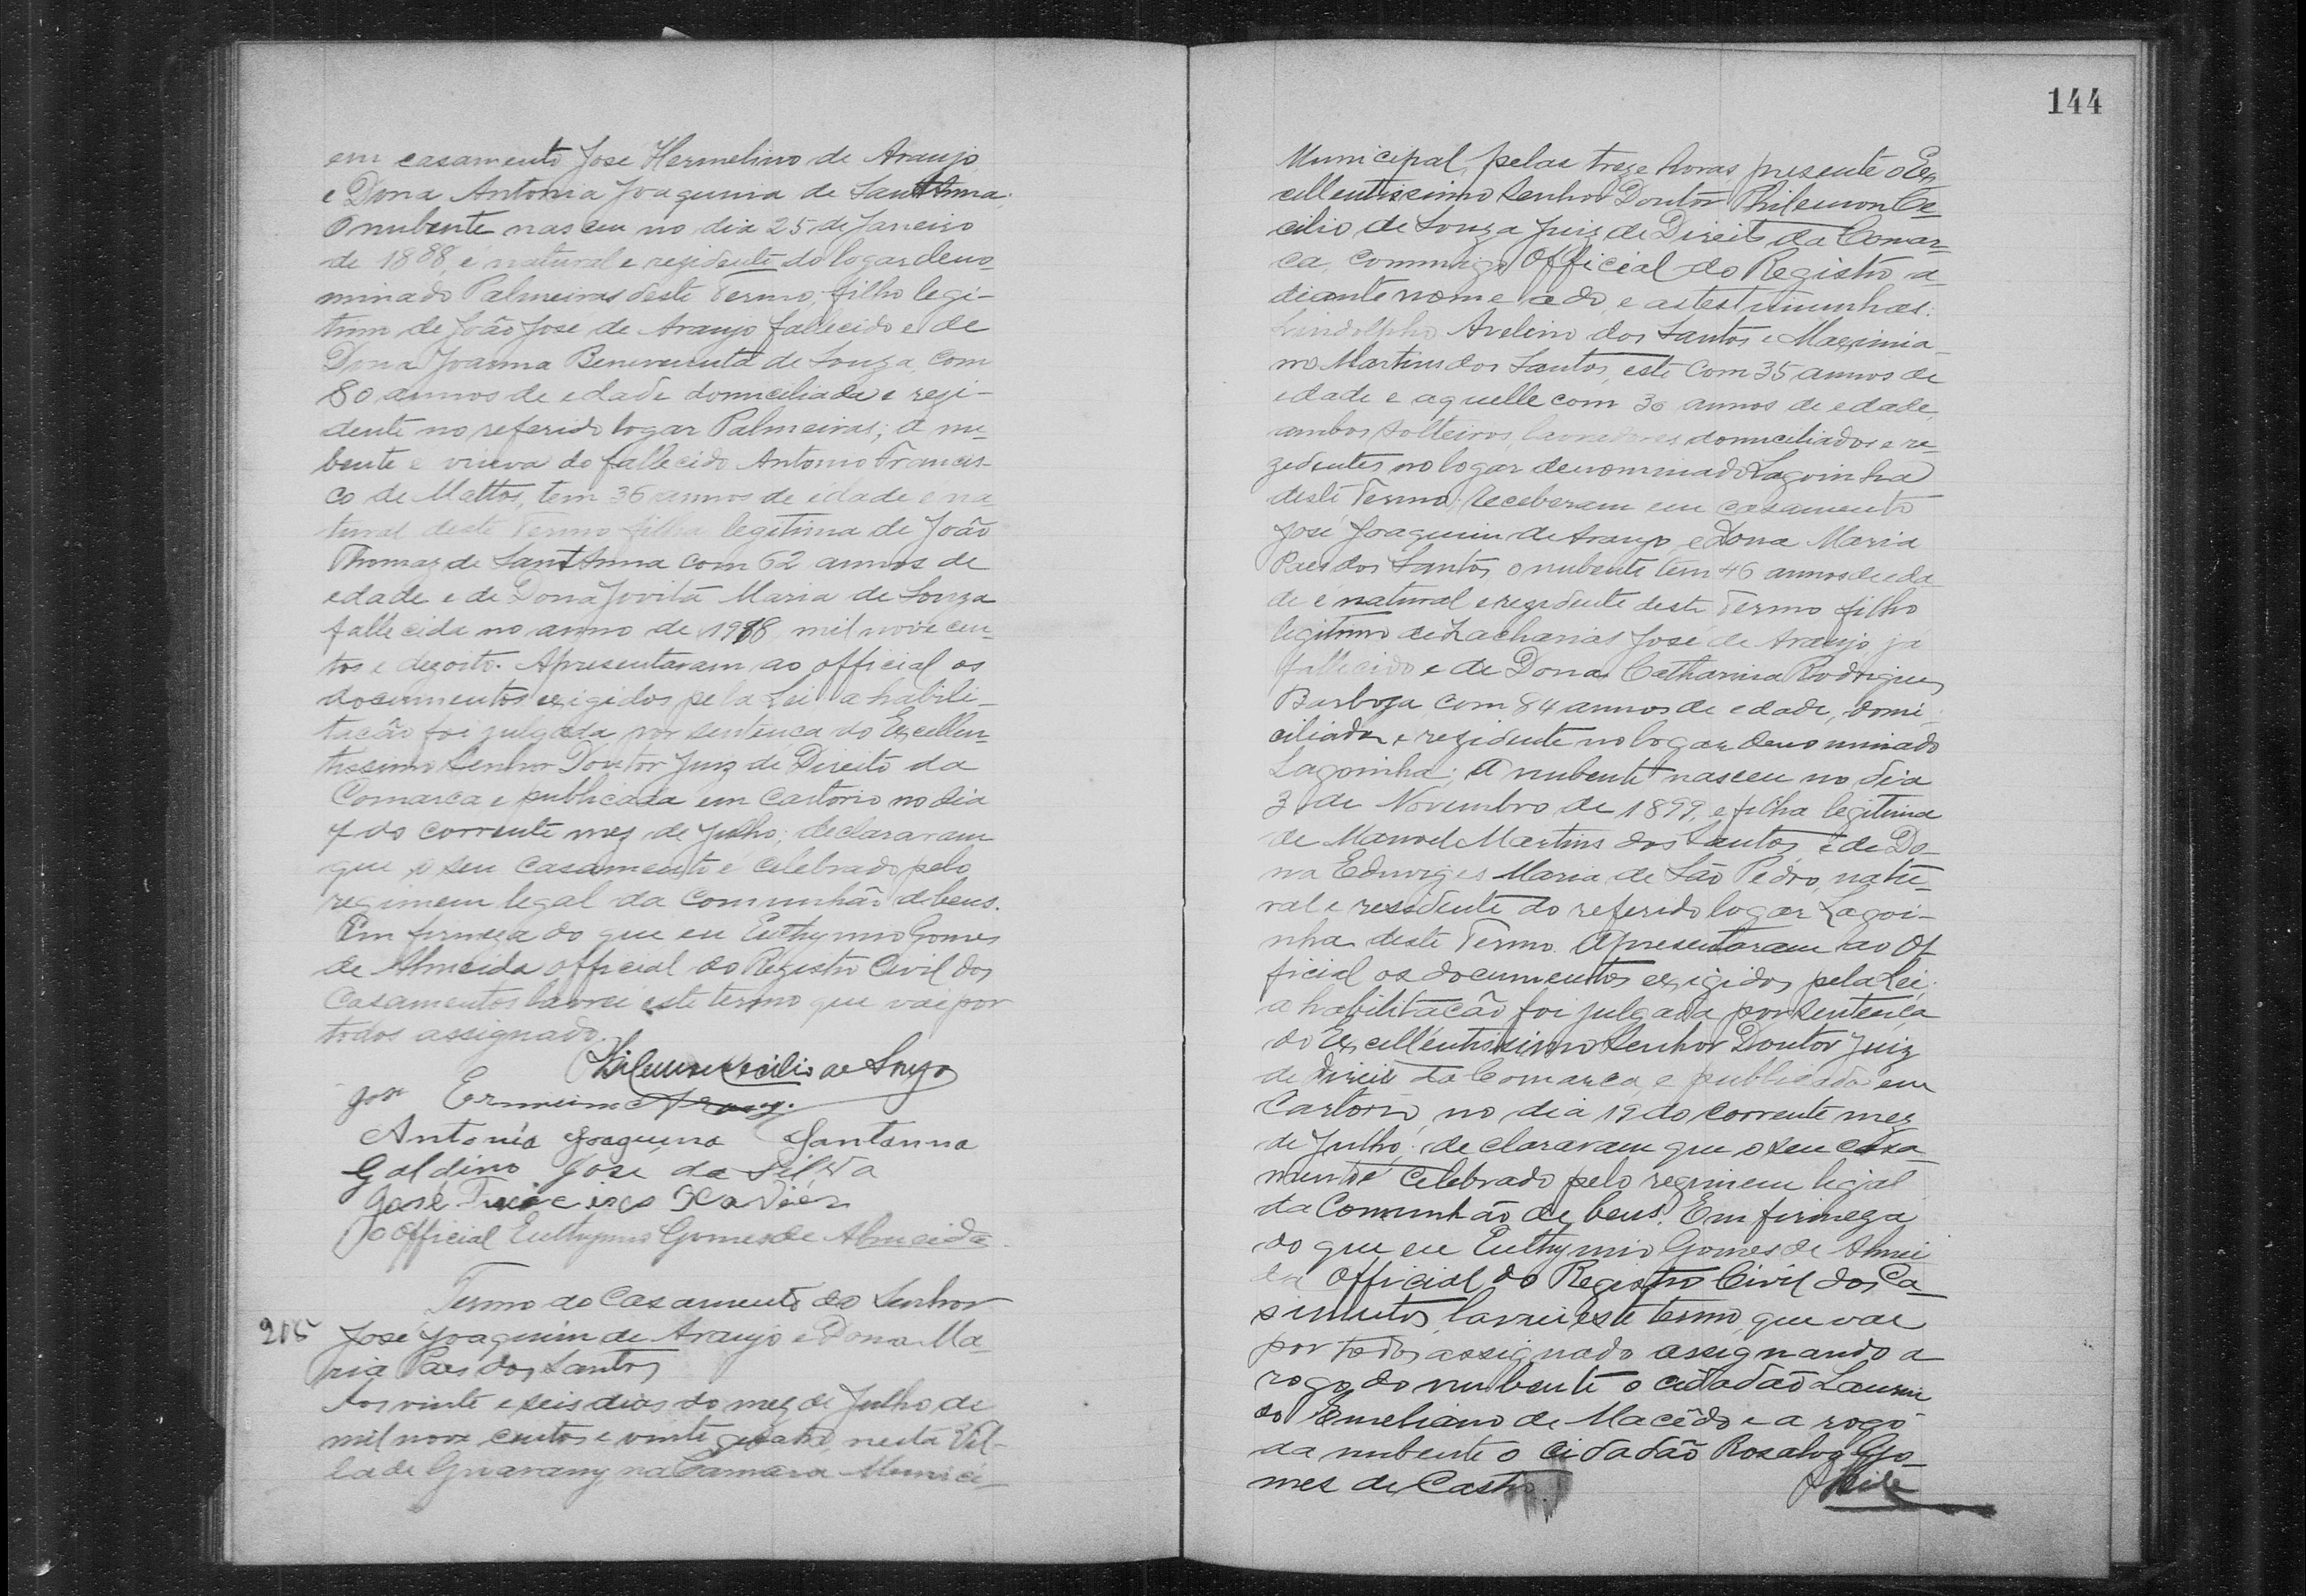 em casamento José Hermelino de Araujo
e Dona Antonia Joaquina de Sant'Anna.
O nubente nasceu no dia 25 de Janeiro
de 1888, é natural e rezidente do logar deno-
minado Palmeiras deste Termo, filho legi-
timo de João José de Araujo fallecido e de
Dona Joanna Benevenuta de Souza, com
80 annos de edade domiciliada e rezi-
dente no referido logar Palmeiras; a nu-
bente é viuva do fallecido Antonio Francis-
co de Mattos, tem 36 annos de idade e na-
tural deste Termo filha legitima de João
Thomaz de Sant'Anna com 62 annos de
edade e de Dona Jovita Maria de Souza
fallecida no anno de 1918 mil nove cen-
tos e dezoito. Apresentaram ao official os
documentos exigidos pela Lei a habili-
tação foi julgada por sentença do Excellen-
tissimo Senhor Doutor Juiz de Direito da
Comarca e publicada em Cartorio no dia
4 do corrente mez de Julho; declararam
que o seu casamento é celebrado pelo
regimem legal da Comunhão de bens.
Em firmeza do que eu Euthymio Gomes
de Almeida official do Registro Civil dos
Casamentos lavrei este termo que vai por
todos assignado.
Philemon Cecilio de Souza
José Ermeino Arauj.
Antonia Joaquina Santanna
Galdino José da Silva
José Francisco Xavier
O Official Euthymio Gomes de Almeida
Termo do Casamento do Senhor
205 José Joaquim de Araujo e Dona Ma-
ria Paes dos Santos
Aos vinte e seis dias do mez de Julho de
mil nove centos e vinte quatro, nesta Vil-
la de Guarany na Camara Munici-
144
Municipal, pelas treze horas, presente o Ex-
cellentissimo Senhor Doutor Philemon Ce-
cilio de Souza Juiz de Direito da Comar-
ca, commigo Official do Registro a-
diante nomeado, e as testimunhas:
Lindolpho Avelino dos Santos e Maximia-
no Martins dos Santos, este com 35 annos de
edade e aquelle com 30 annos de edade,
ambos solteiros, lavradores domiciliados e re-
zidentes no logar denominado Lagoinha
deste Termo; receberam em casamento
José Joaquim de Araujo e Dona Maria
Paes dos Santos, o nubente tem 46 annos de eda-
de e natural e rezidente deste Termo filho
legitimo de Zacharias José de Araujo, já
fallecido e de Dona Catharina Rodrigues
Barboza com 84 annos de edade, domi-
ciliada e rezidente no logar denominado
Lagoinha; A nubente nasceu no dia
3 de Novembro de 1899, e filha legitima
de Manoel Martins dos Santos e de Do-
na Eduviges Maria de São Pedro, natu-
ral e residente do referido logar Lagoi-
nha deste Termo. Apresentaram ao Of-
ficial os documentos exigidos pela Lei;
a habilitação foi julgada por sentença
do Excellentissimo Senhor Doutor Juiz
de Direito da Comarca e publicada em
Cartorio no dia 19 do corrente mez
de Julho; declararam que o seu casa-
mento é celebrado pelo regimem legal
da Comunhão de bens. Em firmeza
do que, eu Euthymio Gomes de Almei-
da Official do Registro Civil dos Ca-
simentos, lavrei este termo que vae
por todos assignado assignando a
rogo do nubente o cidadão Laurin
do Emeliano de Macêdo e a rogo
da nubente o cidadão Rosalvo Go-
mes de Castro.